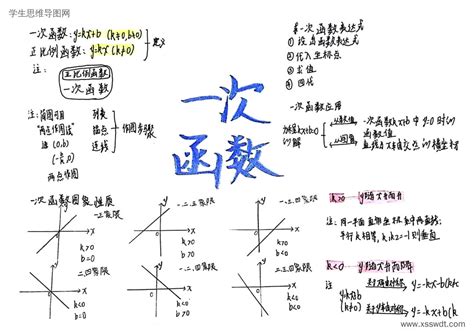 学生思维导图网
一次函数: y=kx+b (k≠0,b≠0)
正比例函数: y=kx (k≠0)
定义
注:
正比例函数
一次函数
注: 画图可用
"两点作图法"
(0,b)
(-b/k,0)
两点作图
列表
描点
连线
作图步骤
一次
函数
一次函数表达式
① 设函数表达式
② 代入坐标点
③ 求值
④ 回代
一次函数应用
方程kx+b=0
的解
一次函数kx+b中y=0时的
函数值
直线与x轴交点的横坐标
一次函数图象性质
一.二.三象限
k>0
b>0
一.三象限
k>0
b=0
一.三.四象限
k>0
b<0
二.四象限
k<0
b=0
二.三.四象限
k<0
b<0
k>0
y随x升而升
注: 同一平面直角坐标系中两直线:
平行k相等, k₁k₂=-1则垂直
k<0
y随x升而降
注:
y=kx+b
y=-kx-b
y=-kx+b
www.xsswdt.com